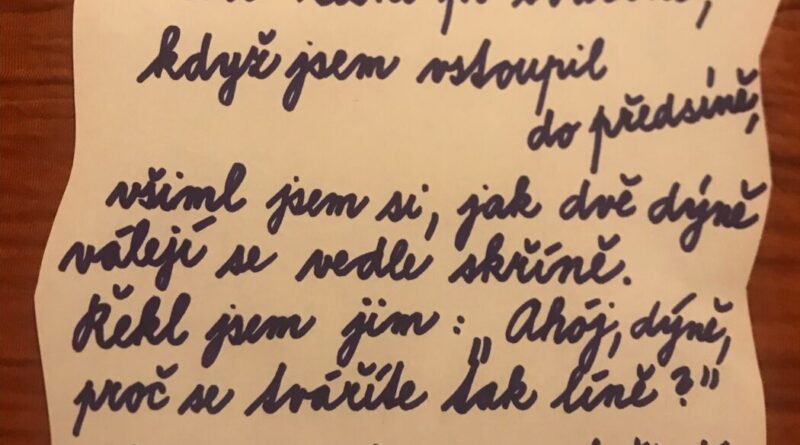 když jsem vstoupil
do předsíně,
všiml jsem si, jak dvě dýně
válejí se vedle skříně.
Řekl jsem jim: „Ahój, dýně,
proč se tváříte tak líně?"